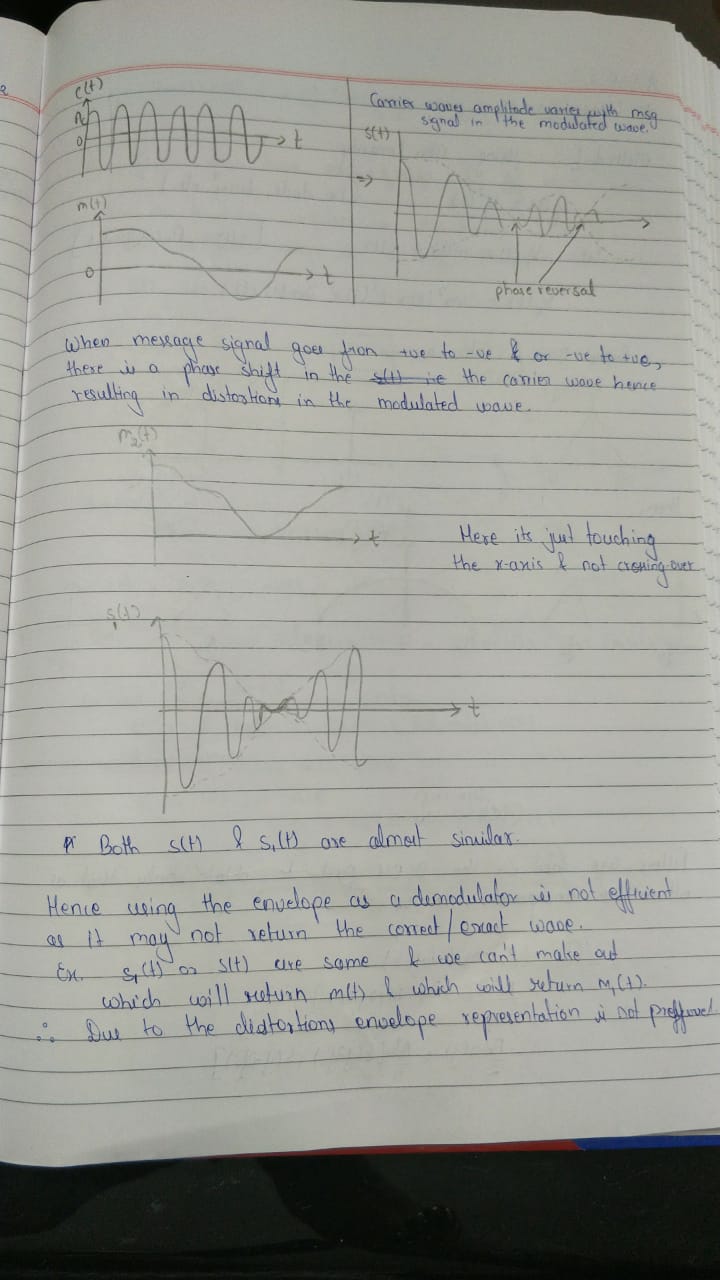 c(t)
0
t
Carrier waves amplitude varies with msg
signal in the modulated wave.
s(t)
⇒
m(t)
0
t
phase reversal
When message signal goes from +ve to -ve & or -ve to +ve,
there is a phase shift in the s(t) ie the carrier wave hence
resulting in distortions in the modulated wave.
m₂(t)
t
Here its just touching
the x-axis & not crossing over
s₁(t)
t
Both s(t) & s₁(t) are almost similar.
Hence using the envelope as a demodulator is not efficient
as it may not return the correct/exact wave.
Ex. s₁(t) or s(t) are same & we can't make out
which will return m(t) & which will return m₁(t).
∴ Due to the distortions envelope representation is not preffured